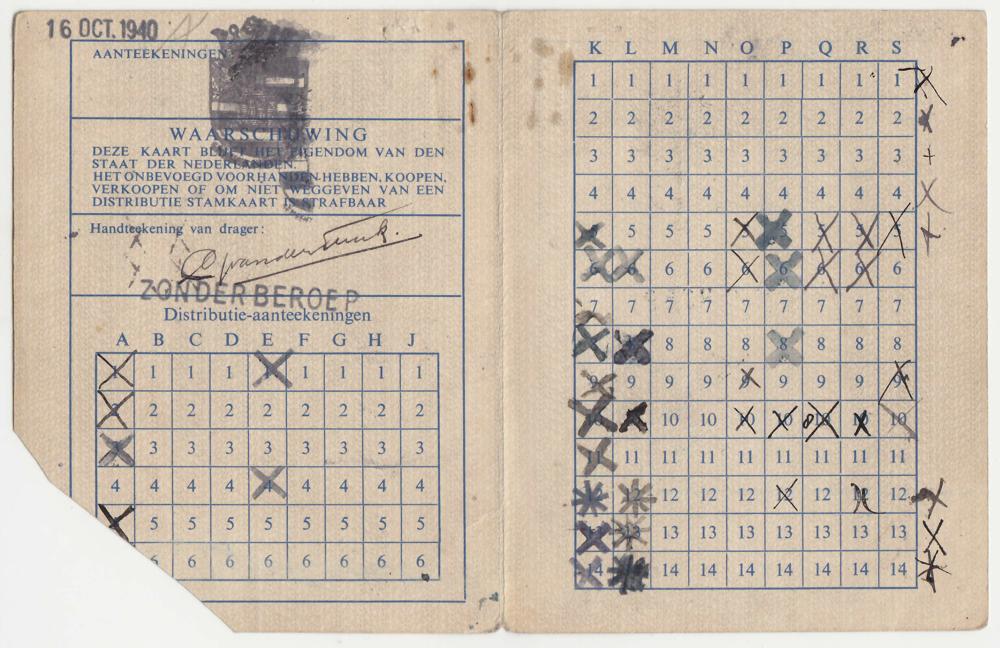 16 OCT. 1940
AANTEEKENINGEN
WAARSCHUWING
DEZE KAART BLIJFT HET EIGENDOM VAN DEN
STAAT DER NEDERLANDEN.
HET ONBEVOEGD VOORHANDEN HEBBEN, KOOPEN,
VERKOOPEN OF OM NIET WEGGEVEN VAN EEN
DISTRIBUTIE STAMKAART IS STRAFBAAR
Handteekening van drager:
ZONDER BEROEP
Distributie-aanteekeningen
A B C D E F G H J
1 1 1 1 1 1 1 1 1
2 2 2 2 2 2 2 2 2
3 3 3 3 3 3 3 3 3
4 4 4 4 4 4 4 4 4
5 5 5 5 5 5 5 5
6 6 6 6 6 6 6 6
K L M N O P Q R S
1 1 1 1 1 1 1 1 1
2 2 2 2 2 2 2 2 2
3 3 3 3 3 3 3 3 3
4 4 4 4 4 4 4 4 4
5 5 5 5 5 5 5 5
6 6 6 6 6 6 6 6 6
7 7 7 7 7 7 7 7 7
8 8 8 8 8 8 8
9 9 9 9 9 9 9 9 9
10 10 10 10 10 10 10 10
11 11 11 11 11 11 11 11 11
12 12 12 12 12 12 12 12 12
13 13 13 13 13 13 13 13 13
14 14 14 14 14 14 14 14